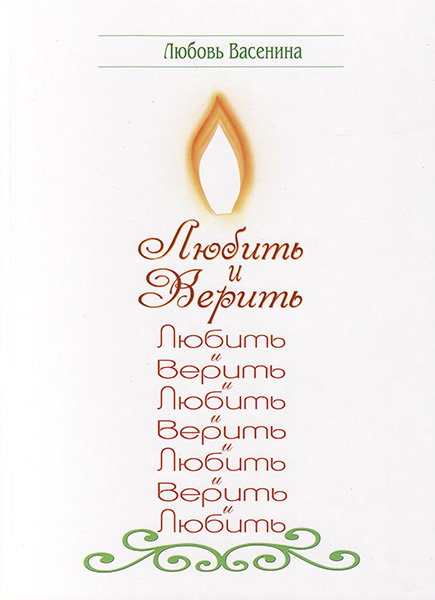 Любовь Васенина
Любить
и
Верить
Любить
и
Верить
и
Любить
и
Верить
и
Любить
и
Верить
и
Любить